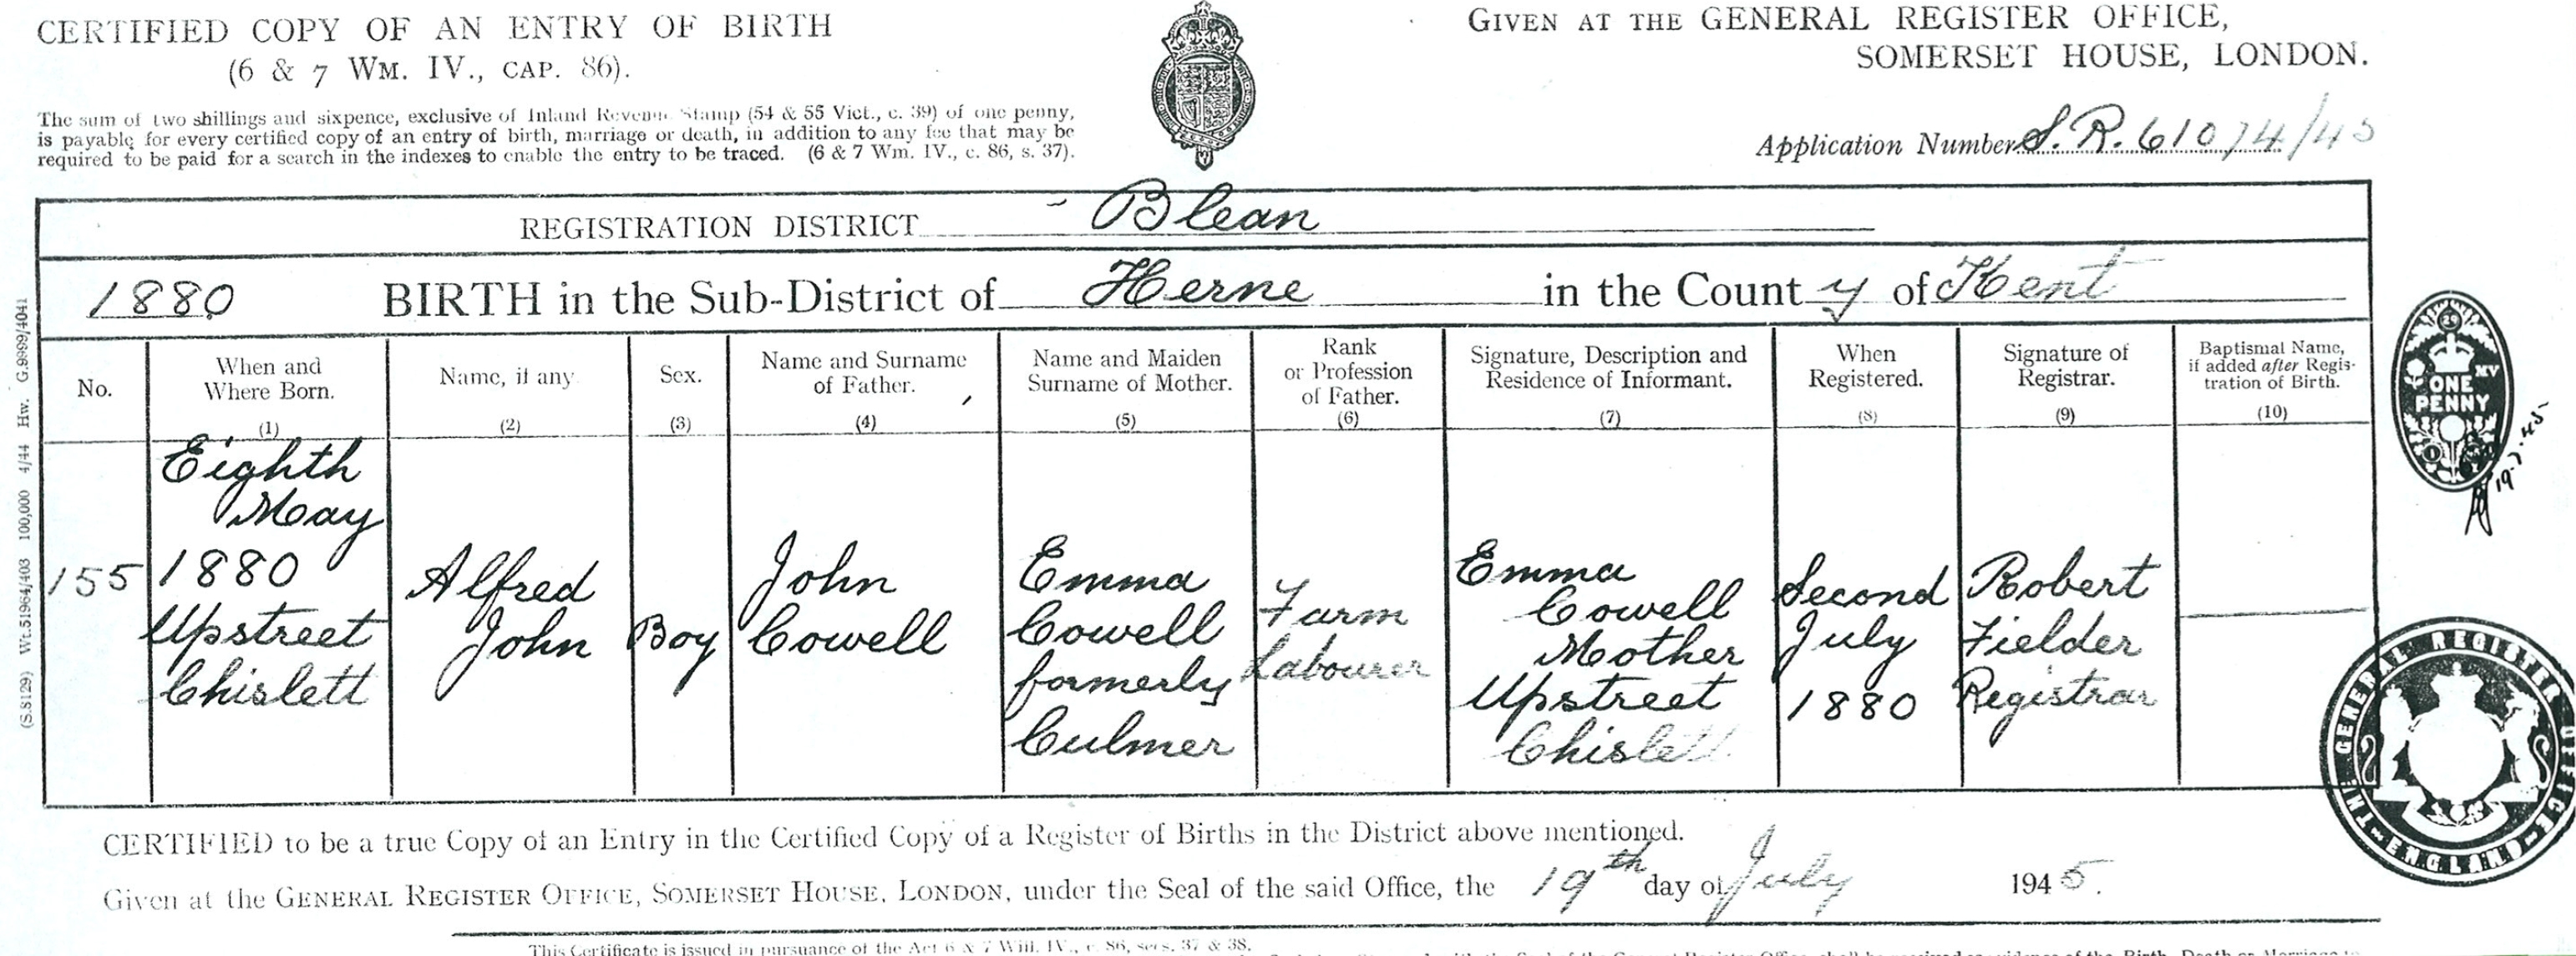 CERTIFIED COPY OF AN ENTRY OF BIRTH
(6 & 7 WM. IV., CAP. 86).
The sum of two shillings and sixpence, exclusive of Inland Revenue Stamp (54 & 55 Vict., c. 39) of one penny,
is payable for every certified copy of an entry of birth, marriage or death, in addition to any fee that may be
required to be paid for a search in the indexes to enable the entry to be traced. (6 & 7 Wm. IV., c. 86, s. 37).
GIVEN AT THE GENERAL REGISTER OFFICE,
SOMERSET HOUSE, LONDON.
Application Number S.R. 61074/45
REGISTRATION DISTRICT Blean
1880 BIRTH in the Sub-District of Herne in the County of Kent
No.
When and
Where Born.
(1)
Name, if any
(2)
Sex.
(3)
Name and Surname
of Father.
(4)
Name and Maiden
Surname of Mother.
(5)
Rank
or Profession
of Father.
(6)
Signature, Description and
Residence of Informant.
(7)
When
Registered.
(8)
Signature of
Registrar.
(9)
Baptismal Name,
if added after Regis-
tration of Birth.
(10)
155
Eighth
May
1880
Upstreet
Chislett
Alfred
John
Boy
John
Cowell
Emma
Cowell
formerly
Culmer
Farm
Labourer
Emma
Cowell
Mother
Upstreet
Chislett
Second
July
1880
Robert
Fielder
Registrar
CERTIFIED to be a true Copy of an Entry in the Certified Copy of a Register of Births in the District above mentioned.
Given at the GENERAL REGISTER OFFICE, SOMERSET HOUSE, LONDON, under the Seal of the said Office, the 19th day of July 1945.
This Certificate is issued in pursuance of the Act 6 & 7 Will. IV., c. 86, secs. 37 & 38.
(S.8129) Wt.51964/403 100,000 4/44 Hw. G.9999/4041
ONE
PENNY
19.7.45
GENERAL REGISTER OFFICE
ENGLAND